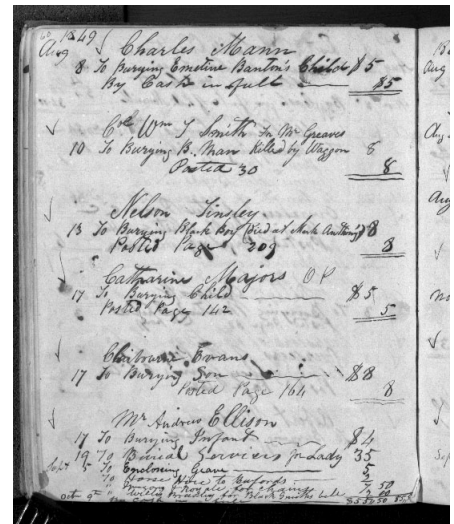 1849
Aug Charles Mann
8 To Burying Emeline Banton's Child $5
By Cash in full $5
Col Wm J Smith for Mr Greaves
10 To Burying B. Man Killed by Waggon 8
Posted 30 8
Nelson Tinsley
13 To Burying Black Boy (Died at Mark Anthony) 8
Posted Page 209 8
Catharine Majors
17 To Burying Child $5
Posted Page 142 5
Evans
17 To Burying Son $8
Posted Page 164 8
Mr Andrew Ellison
17 To Burying Infant $4
19 To Burial Services for Lady 35
Sept 5 To Enclosing Grave 5
To Horse Hire to Bufords 7 50
Oct 9th